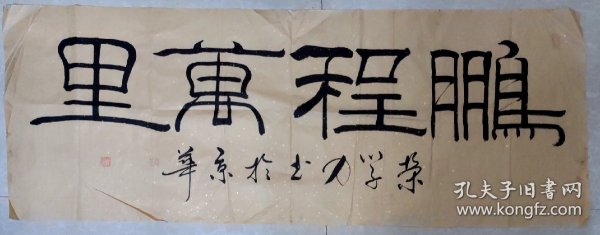 鵬程萬里
荣学力书於京華
孔夫子旧书网
www.kongfz.com